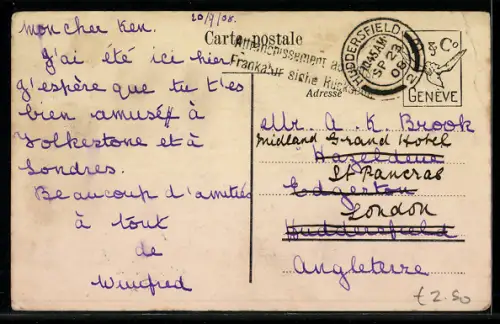 20/9/08.
mon cher Ken.
J'ai été ici hier
J'espère que tu t'es
bien amusé à
Folkestone et à
Londres.
Beaucoup d'amitiés
à tout
de
Winifred
Carte postale
Affranchissement au
Frankatur siehe Rückseite
Adresse
HUDDERSFIELD
10.45AM
SP 23
08
Co
GENÈVE
Mr. A. K. Brook
Midland Grand Hotel
Hazeldene
St Pancras
Edgerton
London
Huddersfield
Angleterre
£2.50